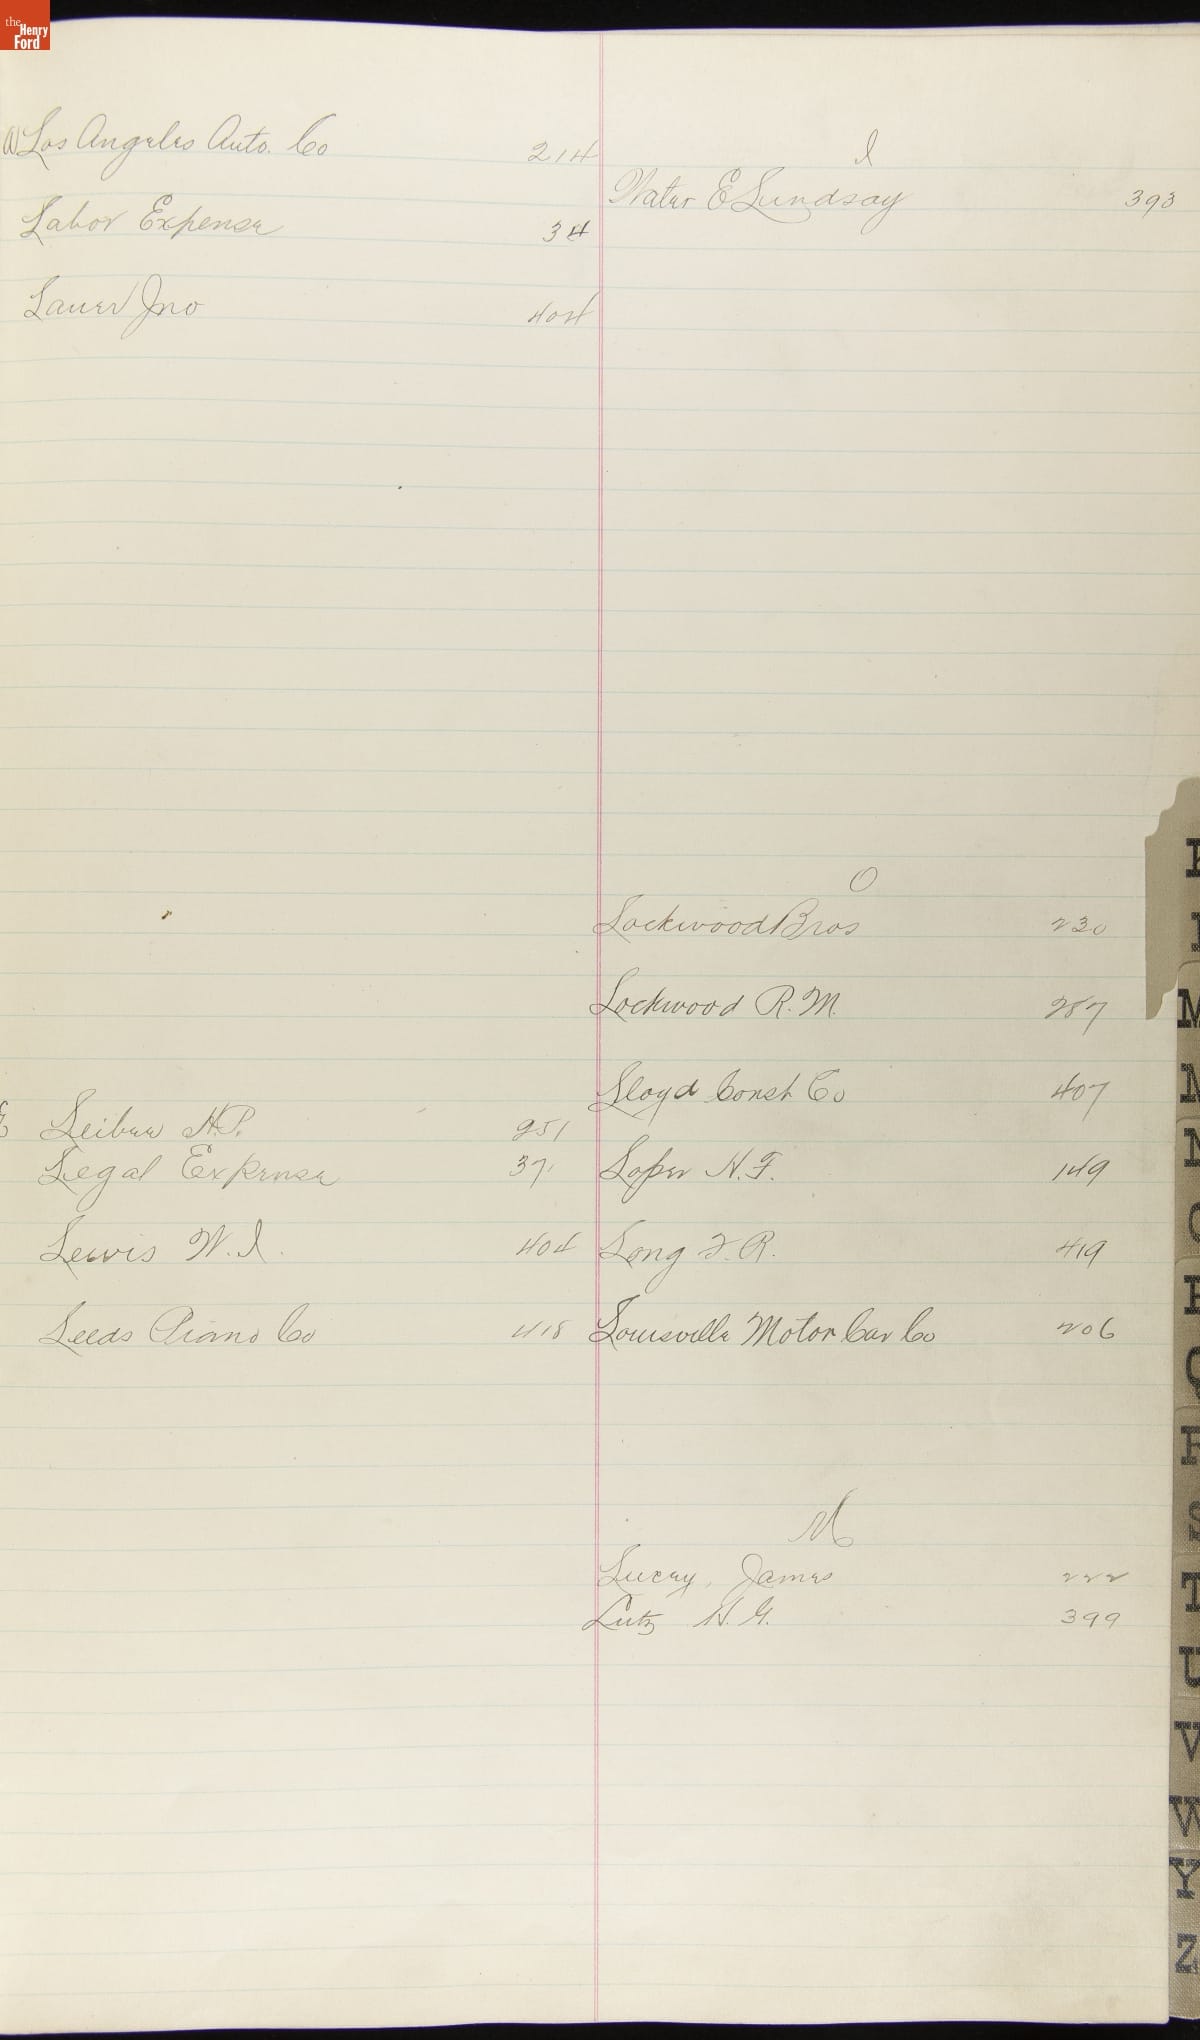 the Henry Ford
a
Los Angeles Auto. Co 214
Labor Expense 34
Lauer Jno 404
E
Leibee H.P. 251
Legal Expense 37
Lewis W. I. 404
Leeds Piano Co 418
I
Water E Lundsay 393
O
Lockwood Bros 230
Lockwood R. M. 287
Lloyd Const Co 407
Loper H. F. 149
Long F. R. 419
Louisville Motor Car Co 206
M
Lucey, James 222
Lutz H. G. 399
M
M
N
P
R
S
T
U
V
W
Y
Z